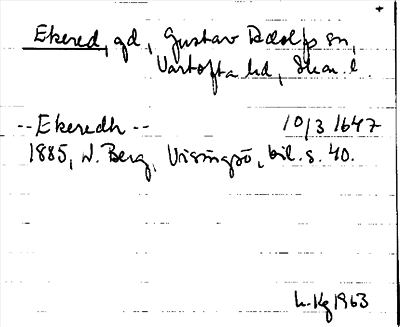 +
Ekered, gd, Gustav Adolfs sn,
Vartofta hd, Skar. l.
--Ekeredh-- 10/3 1647
1885, W. Berg, Visingsö, bil. s. 40.
h. Kg 1963